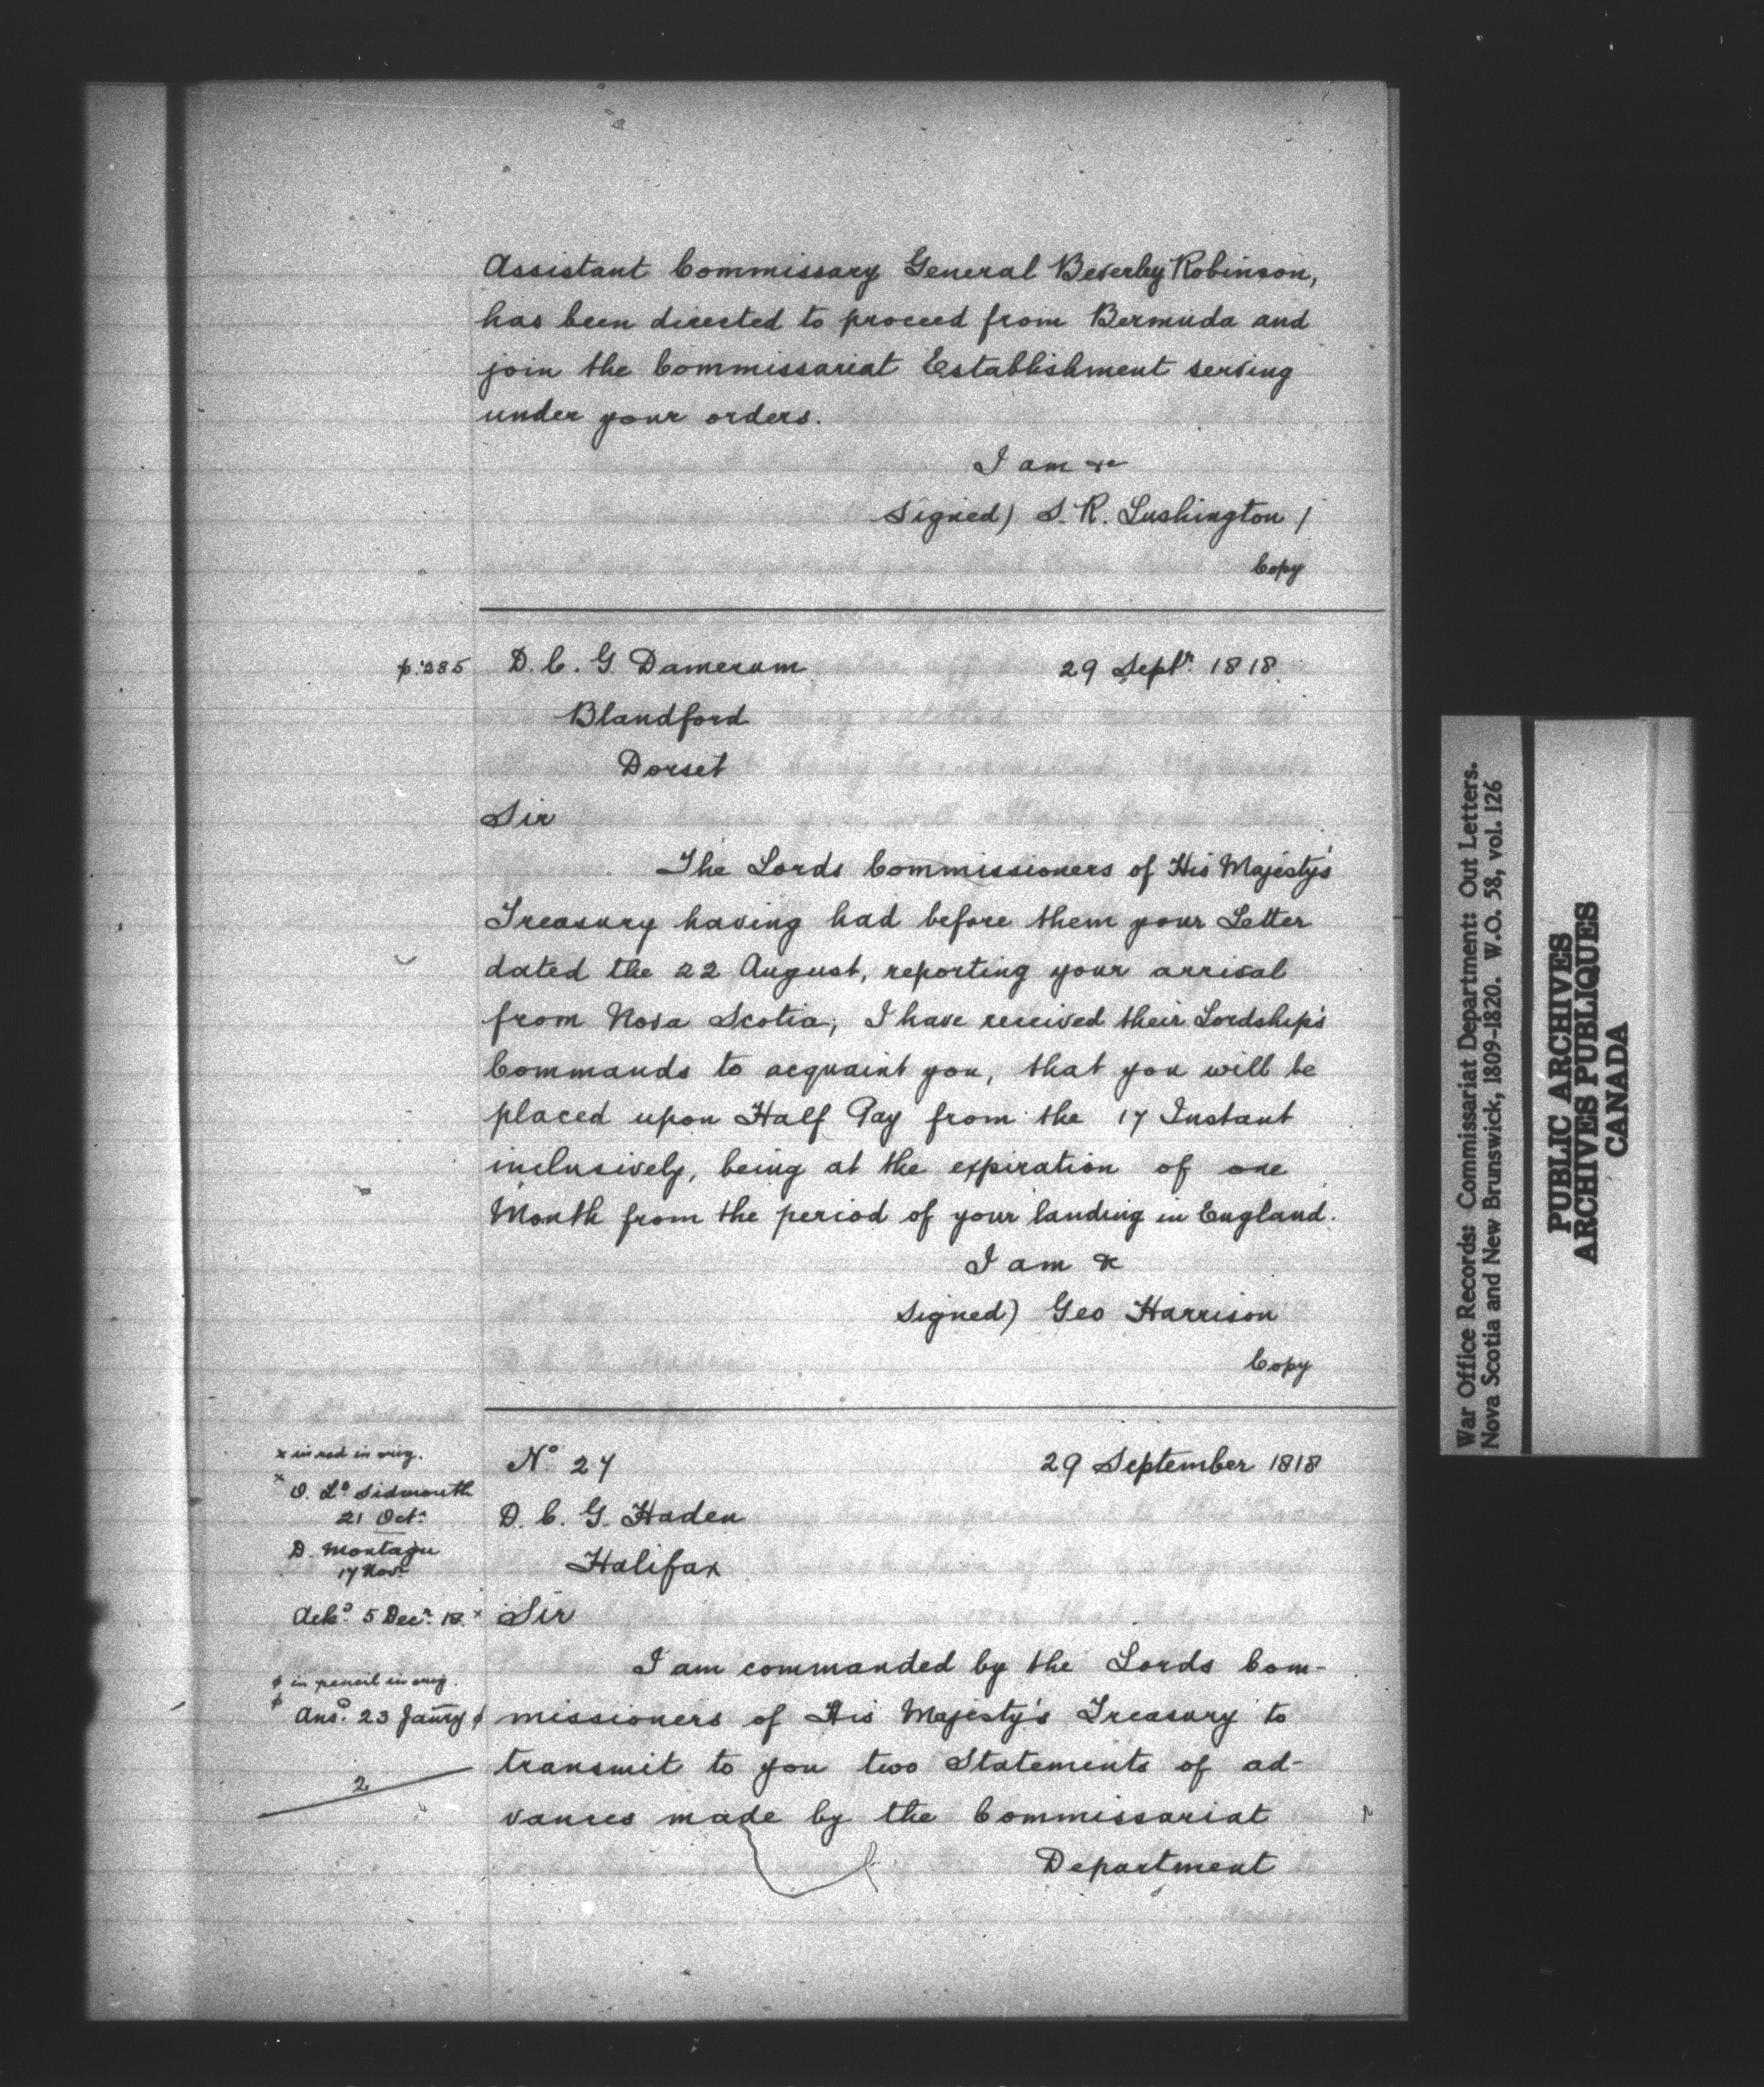 Assistant Commissary General Beverley Robinson,
has been directed to proceed from Bermuda and
join the Commissariat Establishment serving
under your orders.
I am &c
Signed) S. R. Lushington /
Copy
p. 285
D. C. G. Damerum
29 Septr. 1818.
Blandford
Dorset
Sir
The Lords Commissioners of His Majesty's
Treasury having had before them your Letter
dated the 22 August, reporting your arrival
from Nova Scotia, I have received their Lordship's
Commands to acquaint you, that you will be
placed upon Half Pay from the 17 Instant
inclusively, being at the expiration of one
Month from the period of your landing in England.
I am &c
Signed) Geo Harrison
Copy
x in red in orig.
x O. Ld Sidmouth
21 Octr.
D. Montagu
17 Novr.
Ackd. 5 Decr. 18. x
ϕ in pencil in orig.
ϕ Ansd. 23 Janry ϕ
2
No. 27
29 September 1818
D. C. G. Haden
Halifax
Sir
I am commanded by the Lords Com-
missioners of His Majesty's Treasury to
transmit to you two Statements of ad-
vances made by the Commissariat
Department
War Office Records: Commissariat Department: Out Letters.
Nova Scotia and New Brunswick, 1809-1820. W.O. 58, vol. 126
PUBLIC ARCHIVES
ARCHIVES PUBLIQUES
CANADA